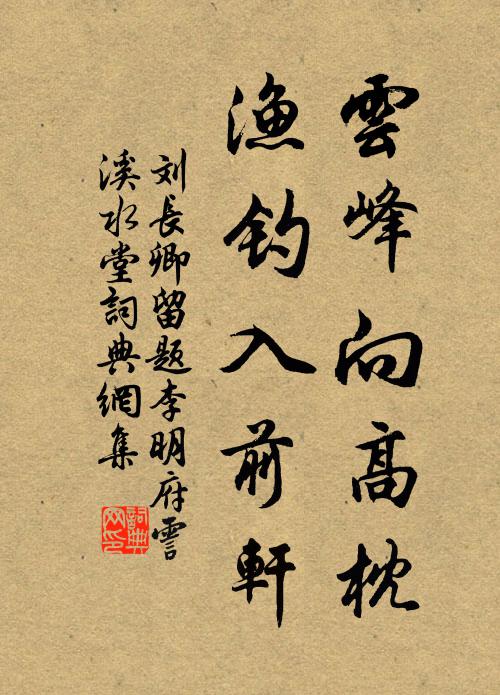 雲峰向高枕
渔钓入前軒
刘長卿留題李明府霅
溪水堂詞典網集
詞典
网印